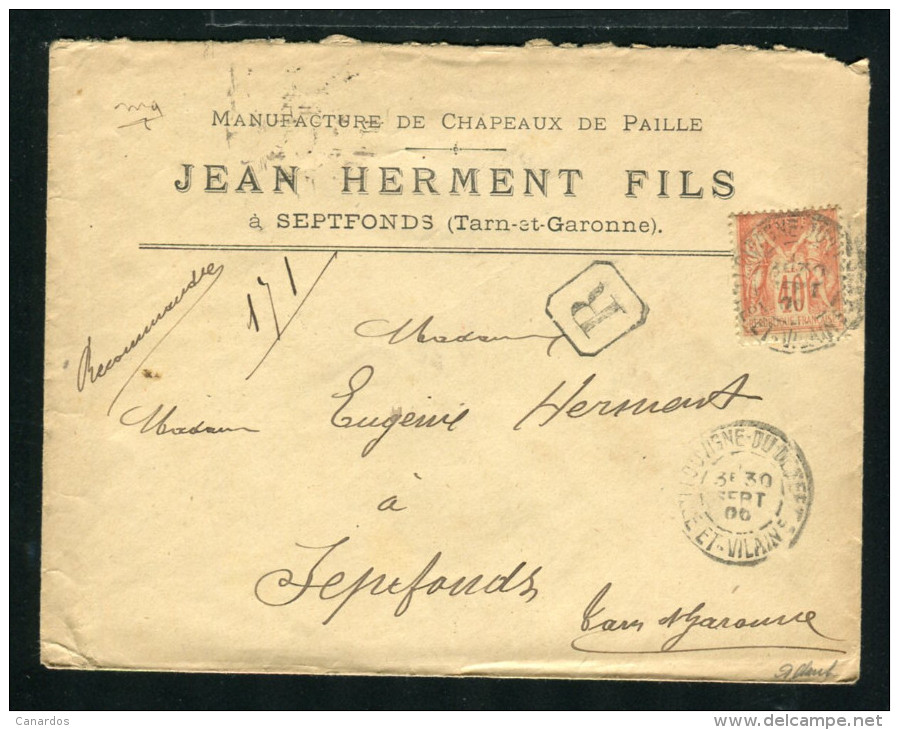 MANUFACTURE DE CHAPEAUX DE PAILLE
JEAN HERMENT FILS
à SEPTFONDS (Tarn-et-Garonne).
Recommandée
171
R
40
Madame
Madame Eugénie Herment
à
Septfonds
Tarn & Garonne
LOUVIGNE-DU-DESERT
3E 30
SEPT
00
ILLE-ET-VILAINE
Canardos
www.delcampe.net